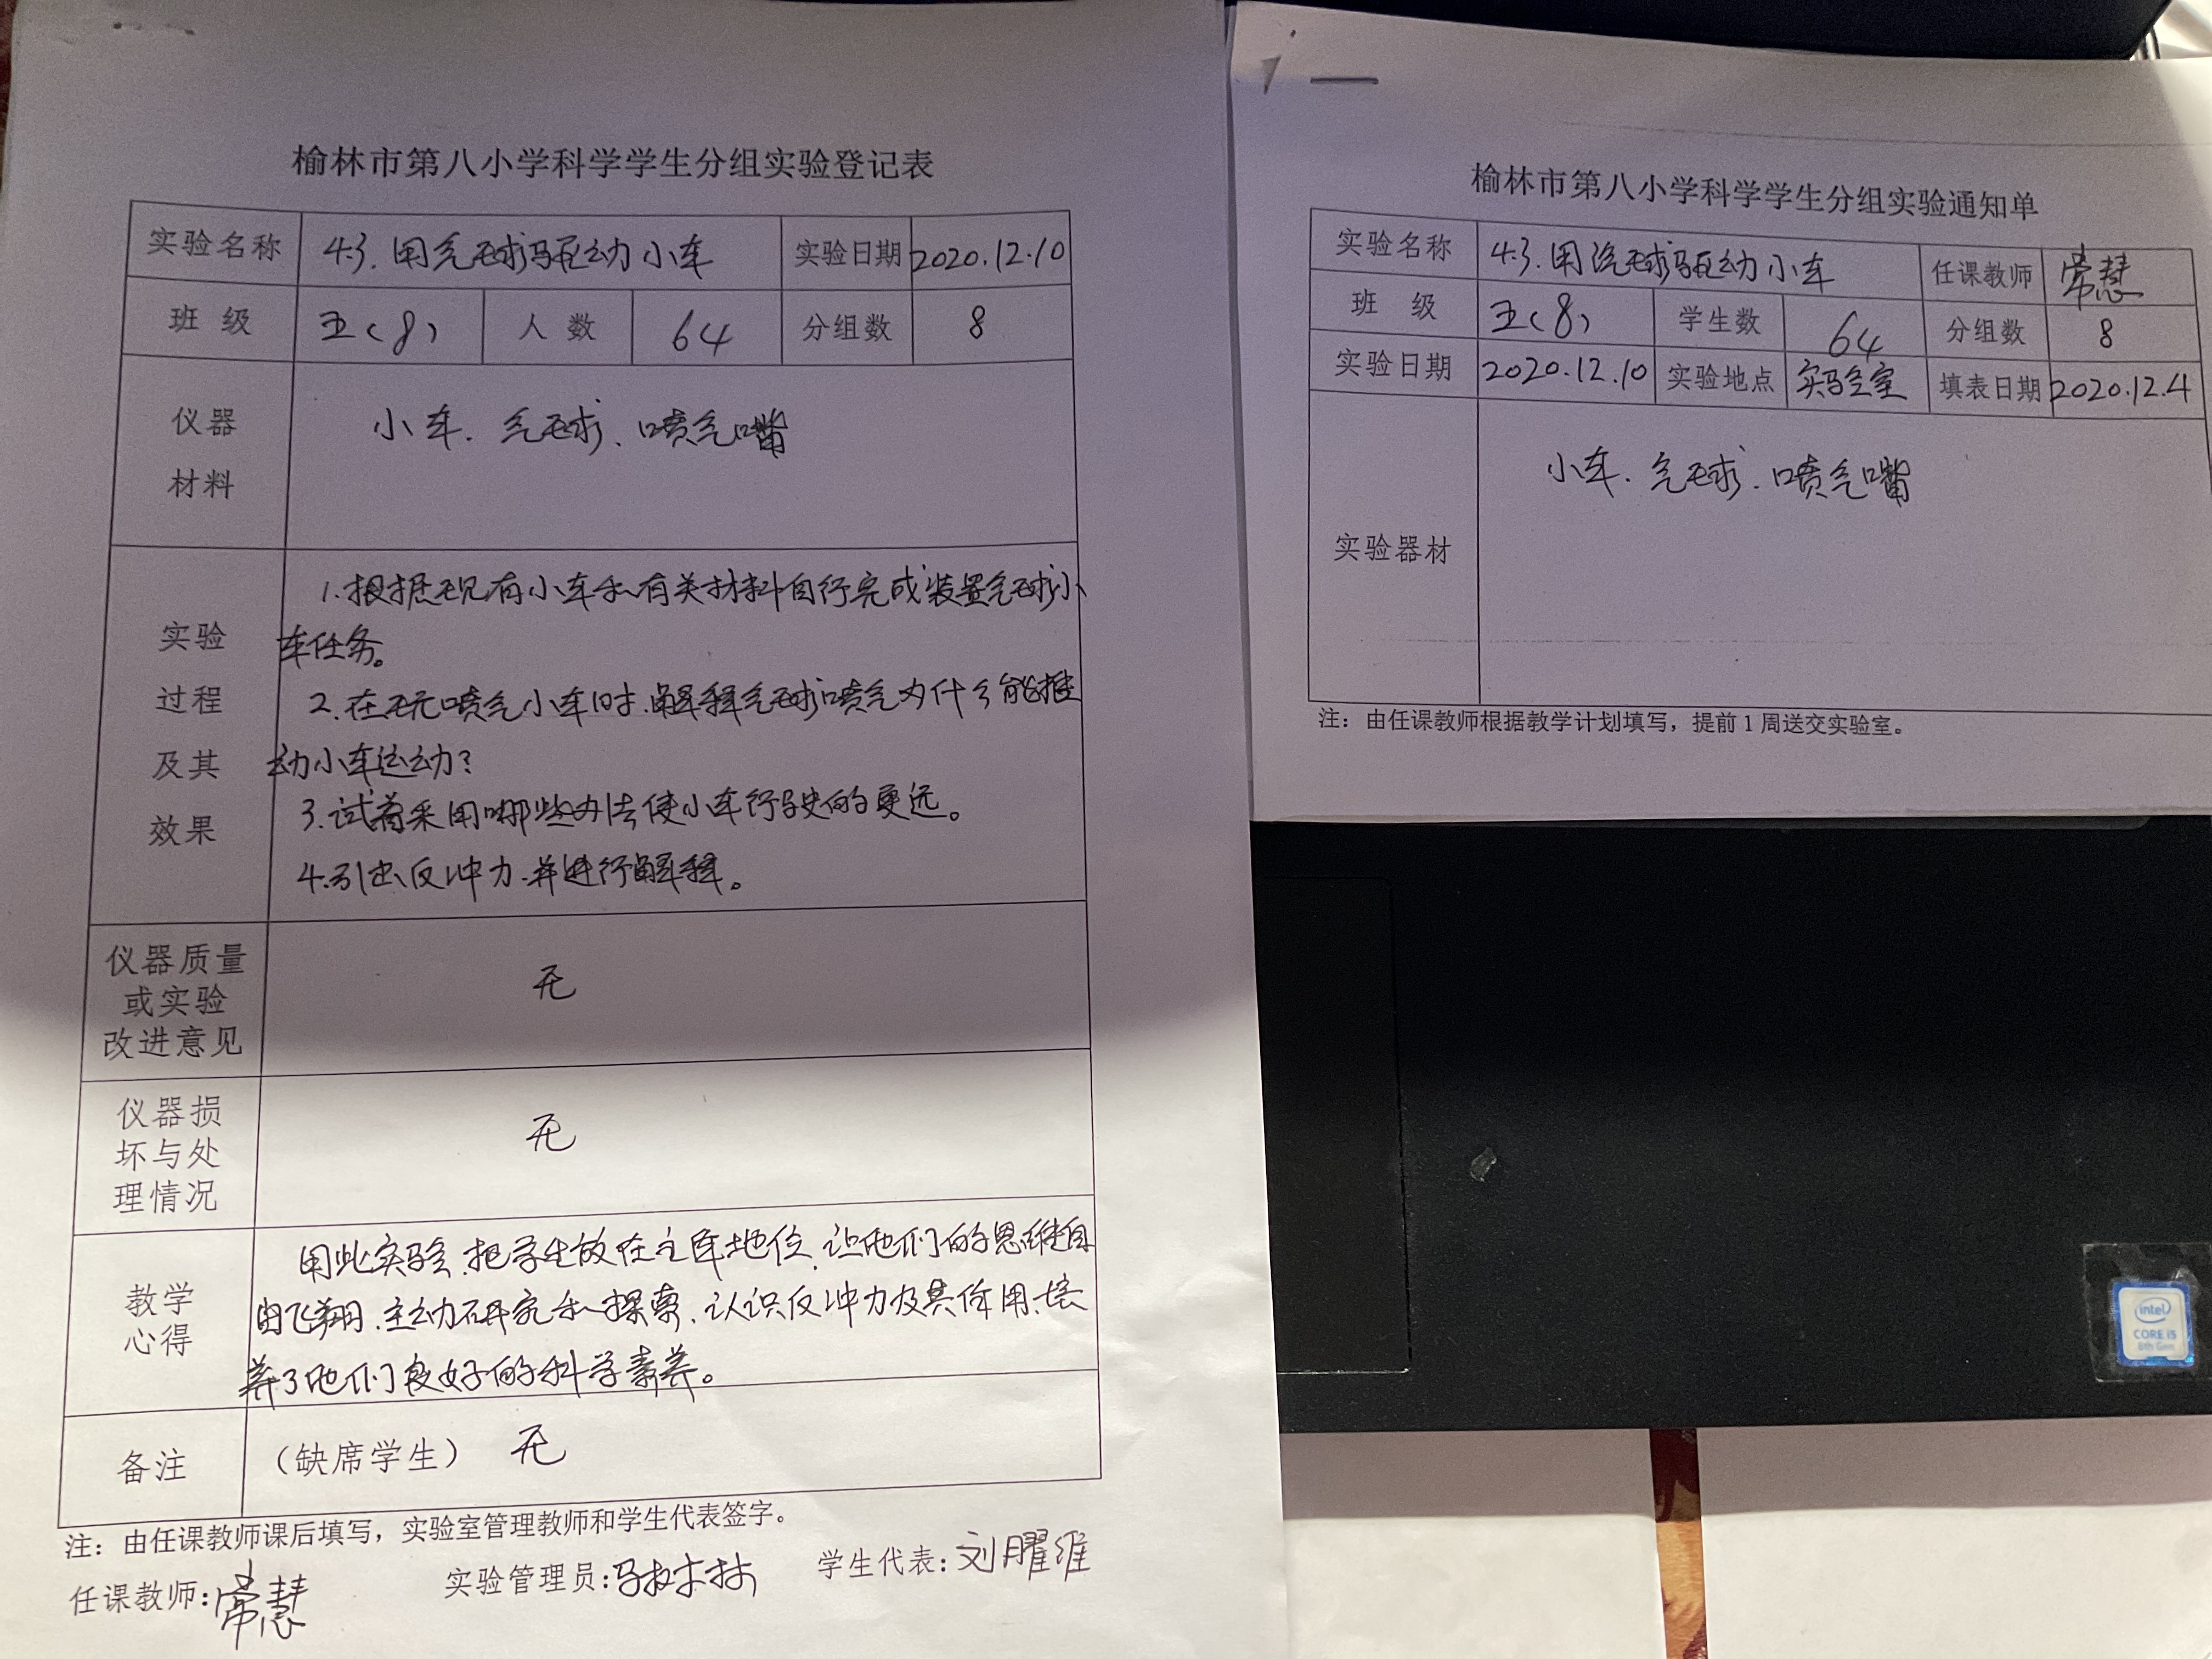 榆林市第八小学科学学生分组实验登记表
实验名称 4.3.用气球驱动小车 实验日期 2020.12.10
班 级 五(8) 人 数 64 分组数 8
仪器
材料
小车、气球、喷气嘴
实验
过程
及其
效果
1.根据现有小车和有关材料自行完成装置气球小
车任务。
2.在玩喷气小车时.解释气球喷气为什么能推
动小车运动?
3.试着采用哪些办法使小车行驶的更远。
4.引出反冲力.并进行解释。
仪器质量
或实验
改进意见
无
仪器损
坏与处
理情况
无
教学
心得
用此实验.把学生放在主体地位.让他们的思维自
由飞翔.主动研究和探索.认识反冲力及其作用.培
养了他们良好的科学素养。
备注 (缺席学生) 无
注：由任课教师课后填写，实验室管理教师和学生代表签字。
任课教师:常慧 实验管理员: 学生代表:刘耀维
榆林市第八小学科学学生分组实验通知单
实验名称 4.3.用汽球驱动小车 任课教师 常慧
班 级 五(8) 学生数 64 分组数 8
实验日期 2020.12.10 实验地点 实验室 填表日期 2020.12.4
实验器材
小车、气球、喷气嘴
注：由任课教师根据教学计划填写，提前1周送交实验室。
intel
CORE i5
8th Gen